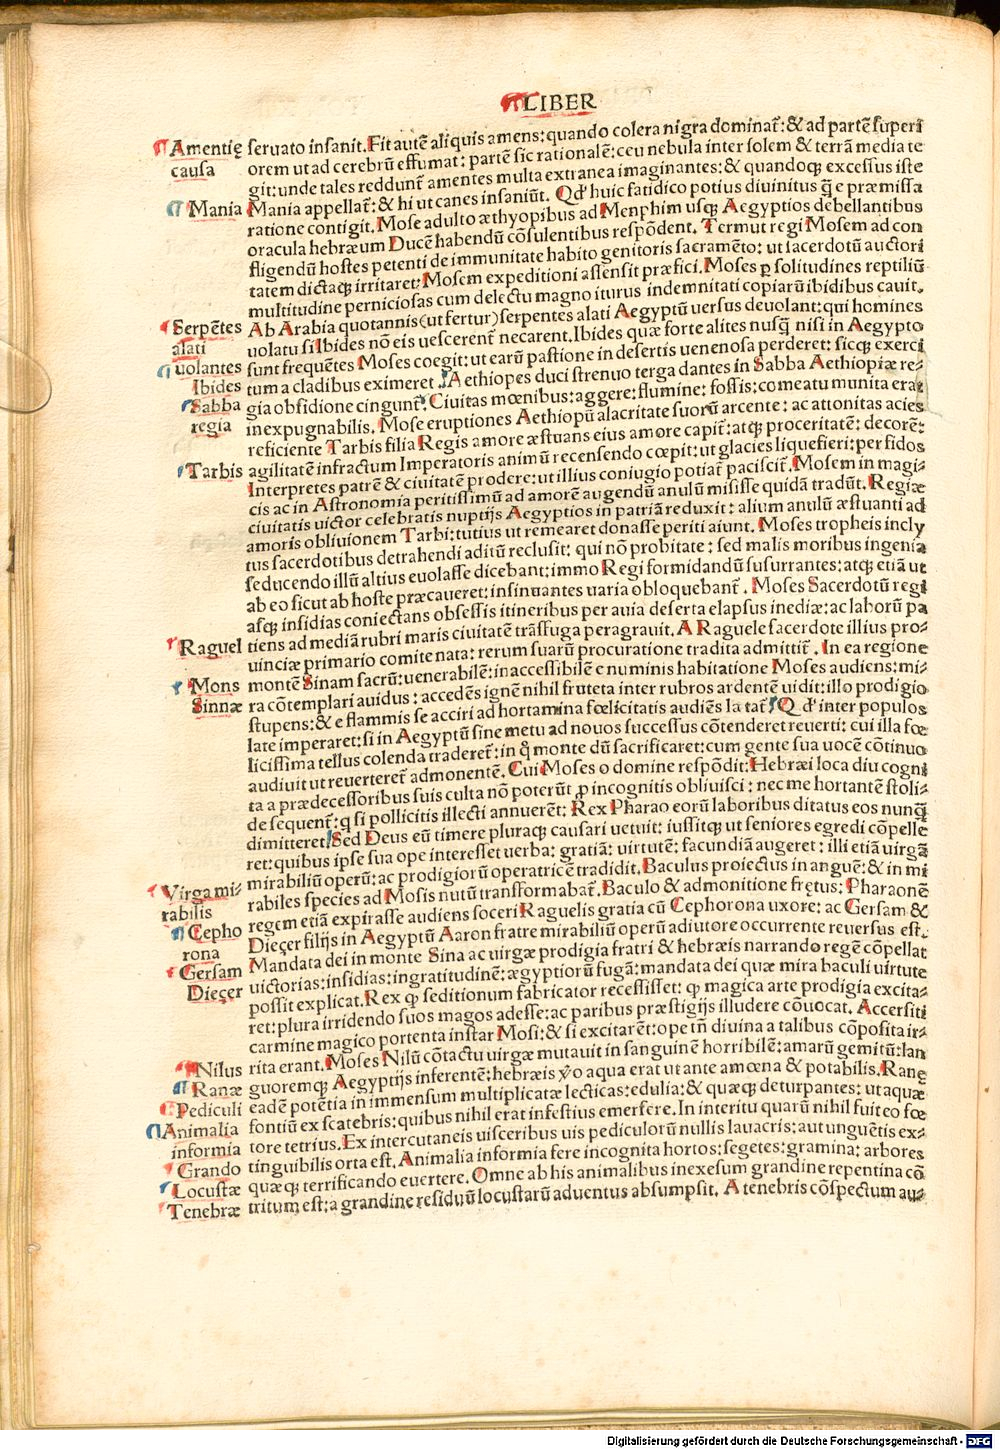 LIBER
Amentię
causa
Mania
Serpẽtes
alati
uolantes
Ibides
Sabba
regia
Tarbis
Raguel
Mons
Sinnæ
Virga mi-
rabilis
Cepho
rona
Gersam
Dieçer
Nilus
Ranæ
Pediculi
Animalia
informia
Grando
Locustæ
Tenebræ
seruato insanit. Fit autẽ aliquis amens: quando colera nigra dominat̃: & ad partẽ superi
orem ut ad cerebrũ effumat: partẽ sic rationalẽ: ceu nebula inter solem & terrã media te
git: unde tales reddunt̃ amentes multa extranea imaginantes: & quandoq; excessus iste
Mania appellat̃: & hi ut canes insaniũt. Qd' huic fatidico potius diuinitus q̃ e præmissa
ratione contigit. Mose adulto æthyopibus ad Menphim usq; Aegyptios debellantibus
oracula hebræum Ducẽ habendũ cõsulentibus respõdent. Termut regi Mosem ad con
fligendũ hostes petenti de immunitate habito genitoris sacramẽto: ut sacerdotũ auctori
tatem dictaq; irritaret: Mosem expeditioni assensit præfici. Moses p solitudines reptiliũ
multitudine perniciosas cum delectu magno iturus indemnitati copiarũ ibidibus cauit.
Ab Arabia quotannis (ut fertur) serpentes alati Aegyptũ uersus deuolant: qui homines
uolatu si Ibides nõ eis uescerent̃ necarent. Ibides quæ forte alites nusq̃ nisi in Aegypto
sunt frequẽtes Moses coegit: ut earũ pastione in desertis uenenosa perderet: sicq; exerci
tum a cladibus eximeret. Aethiopes duci strenuo terga dantes in Sabba Aethiopiæ re-
gia obsidione cingunt̃. Ciuitas mœnibus: aggere: flumine: fossis: comeatu munita erat
inexpugnabilis. Mose eruptiones Aethiopũ alacritate suorũ arcente: ac attonitas acies
reficiente Tarbis filia Regis amore æstuans eius amore capit̃: atq; proceritatẽ: decorẽ:
agilitatẽ infractum Imperatoris animũ recensendo cœpit: ut glacies liquefieri: per fidos
Interpretes patrẽ & ciuitatẽ prodere: ut illius coniugio potiat̃ paciscit̃. Mosem in magi-
cis ac in Astronomia peritissimũ ad amorẽ augendũ anulũ misisse quidã tradũt. Regiæ
ciuitatis uictor celebratis nuptijs Aegyptios in patriã reduxit: alium anulũ æstuanti ad
amoris obliuionem Tarbi: tutius ut remearet donasse periti aiunt. Moses tropheis incly
tus sacerdotibus detrahendi aditũ reclusit: qui nõ probitate: sed malis moribus ingenia
seducendo illũ altius euolasse dicebant: immo Regi formidandũ susurrantes: atq; etiã ut
ab eo sicut ab hoste præcaueret: insinuantes uaria obloquebant̃. Moses Sacerdotũ regi
asq; insidias coniectans obsessis itineribus per auia deserta elapsus inediæ: ac laborũ pa
tiens ad mediã rubri maris ciuitatẽ trãsfuga peragrauit. A Raguele sacerdote illius pro-
uinciæ primario comite nata: rerum suarũ procuratione tradita admittit̃. In ea regione
montẽ Sinam sacrũ: uenerabilẽ: inaccessibilẽ e numinis habitatione Moses audiens: mi-
ra cõtemplari auidus: accedẽs ignẽ nihil fruteta inter rubros ardentẽ uidit: illo prodigio
stupens: & e flammis se acciri ad hortamina fœlicitatis audiẽs lætat̃. Qd' inter populos
late imperaret: si in Aegyptũ sine metu ad nouos successus cõtenderet reuerti: cui illa fœ
licissima tellus colenda traderet̃: in q̃ monte dũ sacrificaret: cum gente sua uocẽ cõtinuo
audiuit ut reuerteret̃ admonentẽ. Cui Moses o domine respõdit: Hebræi loca diu cogni
ta a prædecessoribus suis culta nõ poterũt p incognitis obliuisci: nec me hortantẽ stoli-
de sequent̃: q si pollicitis illecti annuerẽt: Rex Pharao eorũ laboribus ditatus eos nunq̃
dimitteret. Sed Deus eũ timere pluraq; causari uetuit: iussitq; ut seniores egredi cõpelle
ret: quibus ipse sua ope interesset uerba: gratiã: uirtutẽ: facundiã augeret: illi etiã uirgã
mirabiliũ operũ: ac prodigiorũ operatricẽ tradidit. Baculus proiectus in anguẽ: & in mi
rabiles species ad Mosis nutũ transformabat̃. Baculo & admonitione frętus: Pharaonẽ
regem etiã expirasse audiens soceri Raguelis gratia cũ Cephorona uxore: ac Gersam &
Dieçer filijs in Aegyptũ Aaron fratre mirabiliũ operũ adiutore occurrente reuersus est.
Mandata dei in monte Sina ac uirgæ prodigia fratri & hebræis narrando regẽ cõpellat
uictorias: insidias: ingratitudinẽ: ægyptiorũ fugã: mandata dei quæ mira baculi uirtute
possit explicat. Rex q; seditionum fabricator recessisset: q; magica arte prodigia excita-
ret: plura irridendo suos magos adesse: ac paribus præstigijs illudere cõuocat. Accersiti
carmine magico portenta instar Mosi: & si excitarẽt: ope tñ diuina a talibus cõposita ir-
rita erant. Moses Nilũ cõtactu uirgæ mutauit in sanguinẽ horribilẽ: amarũ gemitũ: lan
guoremq; Aegyptijs inferentẽ: hebræis ỹo aqua erat ut ante amœna & potabilis. Ranę
eadẽ potẽtia in immensum multiplicatæ lecticas: edulia: & quæq; deturpantes: ut aquæ
fontiũ ex scatebris: quibus nihil erat infestius emersere. In interitu quarũ nihil fuit eo fœ
tore tetrius. Ex intercutaneis uisceribus uis pediculorũ nullis lauacris: aut unguẽtis ex-
tinguibilis orta est. Animalia informia fere incognita hortos: segetes: gramina: arbores
quæq; terrificando euertere. Omne ab his animalibus inexesum grandine repentina cõ
tritum est: a grandine residuũ locustarũ aduentus absumpsit. A tenebris cõspectum au-
Digitalisierung gefördert durch die Deutsche Forschungsgemeinschaft - DFG